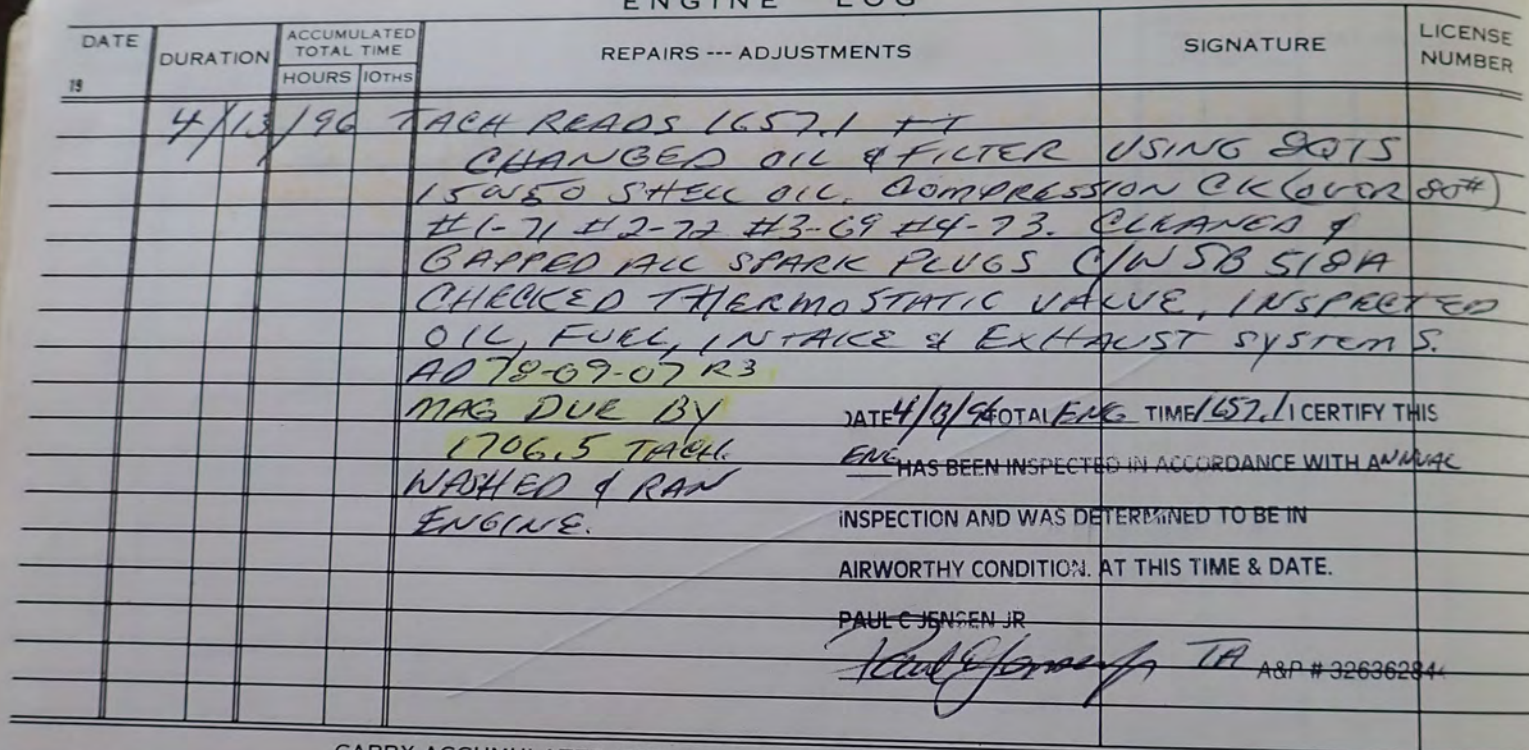 ENGINE LOG
DATE
DURATION
ACCUMULATED
TOTAL TIME
HOURS
10THS
REPAIRS --- ADJUSTMENTS
SIGNATURE
LICENSE
NUMBER
19
4/13/96 TACH READS 1657.1 TT
CHANGED OIL & FILTER USING 8QTS
15W50 SHELL OIL. COMPRESSION CK (OVER 80#)
#1-71 #2-72 #3-69 #4-73. CLEANED &
GAPPED ALL SPARK PLUGS C/W SB 518A
CHECKED THERMOSTATIC VALVE, INSPECTED
OIL, FUEL, INTAKE & EXHAUST SYSTEMS.
AD 78-09-07 R3
MAG DUE BY
1706.5 TACH.
WASHED & RAN
ENGINE.
DATE 4/13/96 TOTAL ENG TIME 1657.1 I CERTIFY THIS
ENG HAS BEEN INSPECTED IN ACCORDANCE WITH ANNUAL
INSPECTION AND WAS DETERMINED TO BE IN
AIRWORTHY CONDITION. AT THIS TIME & DATE.
PAUL C JENSEN JR
A&P # 32636284